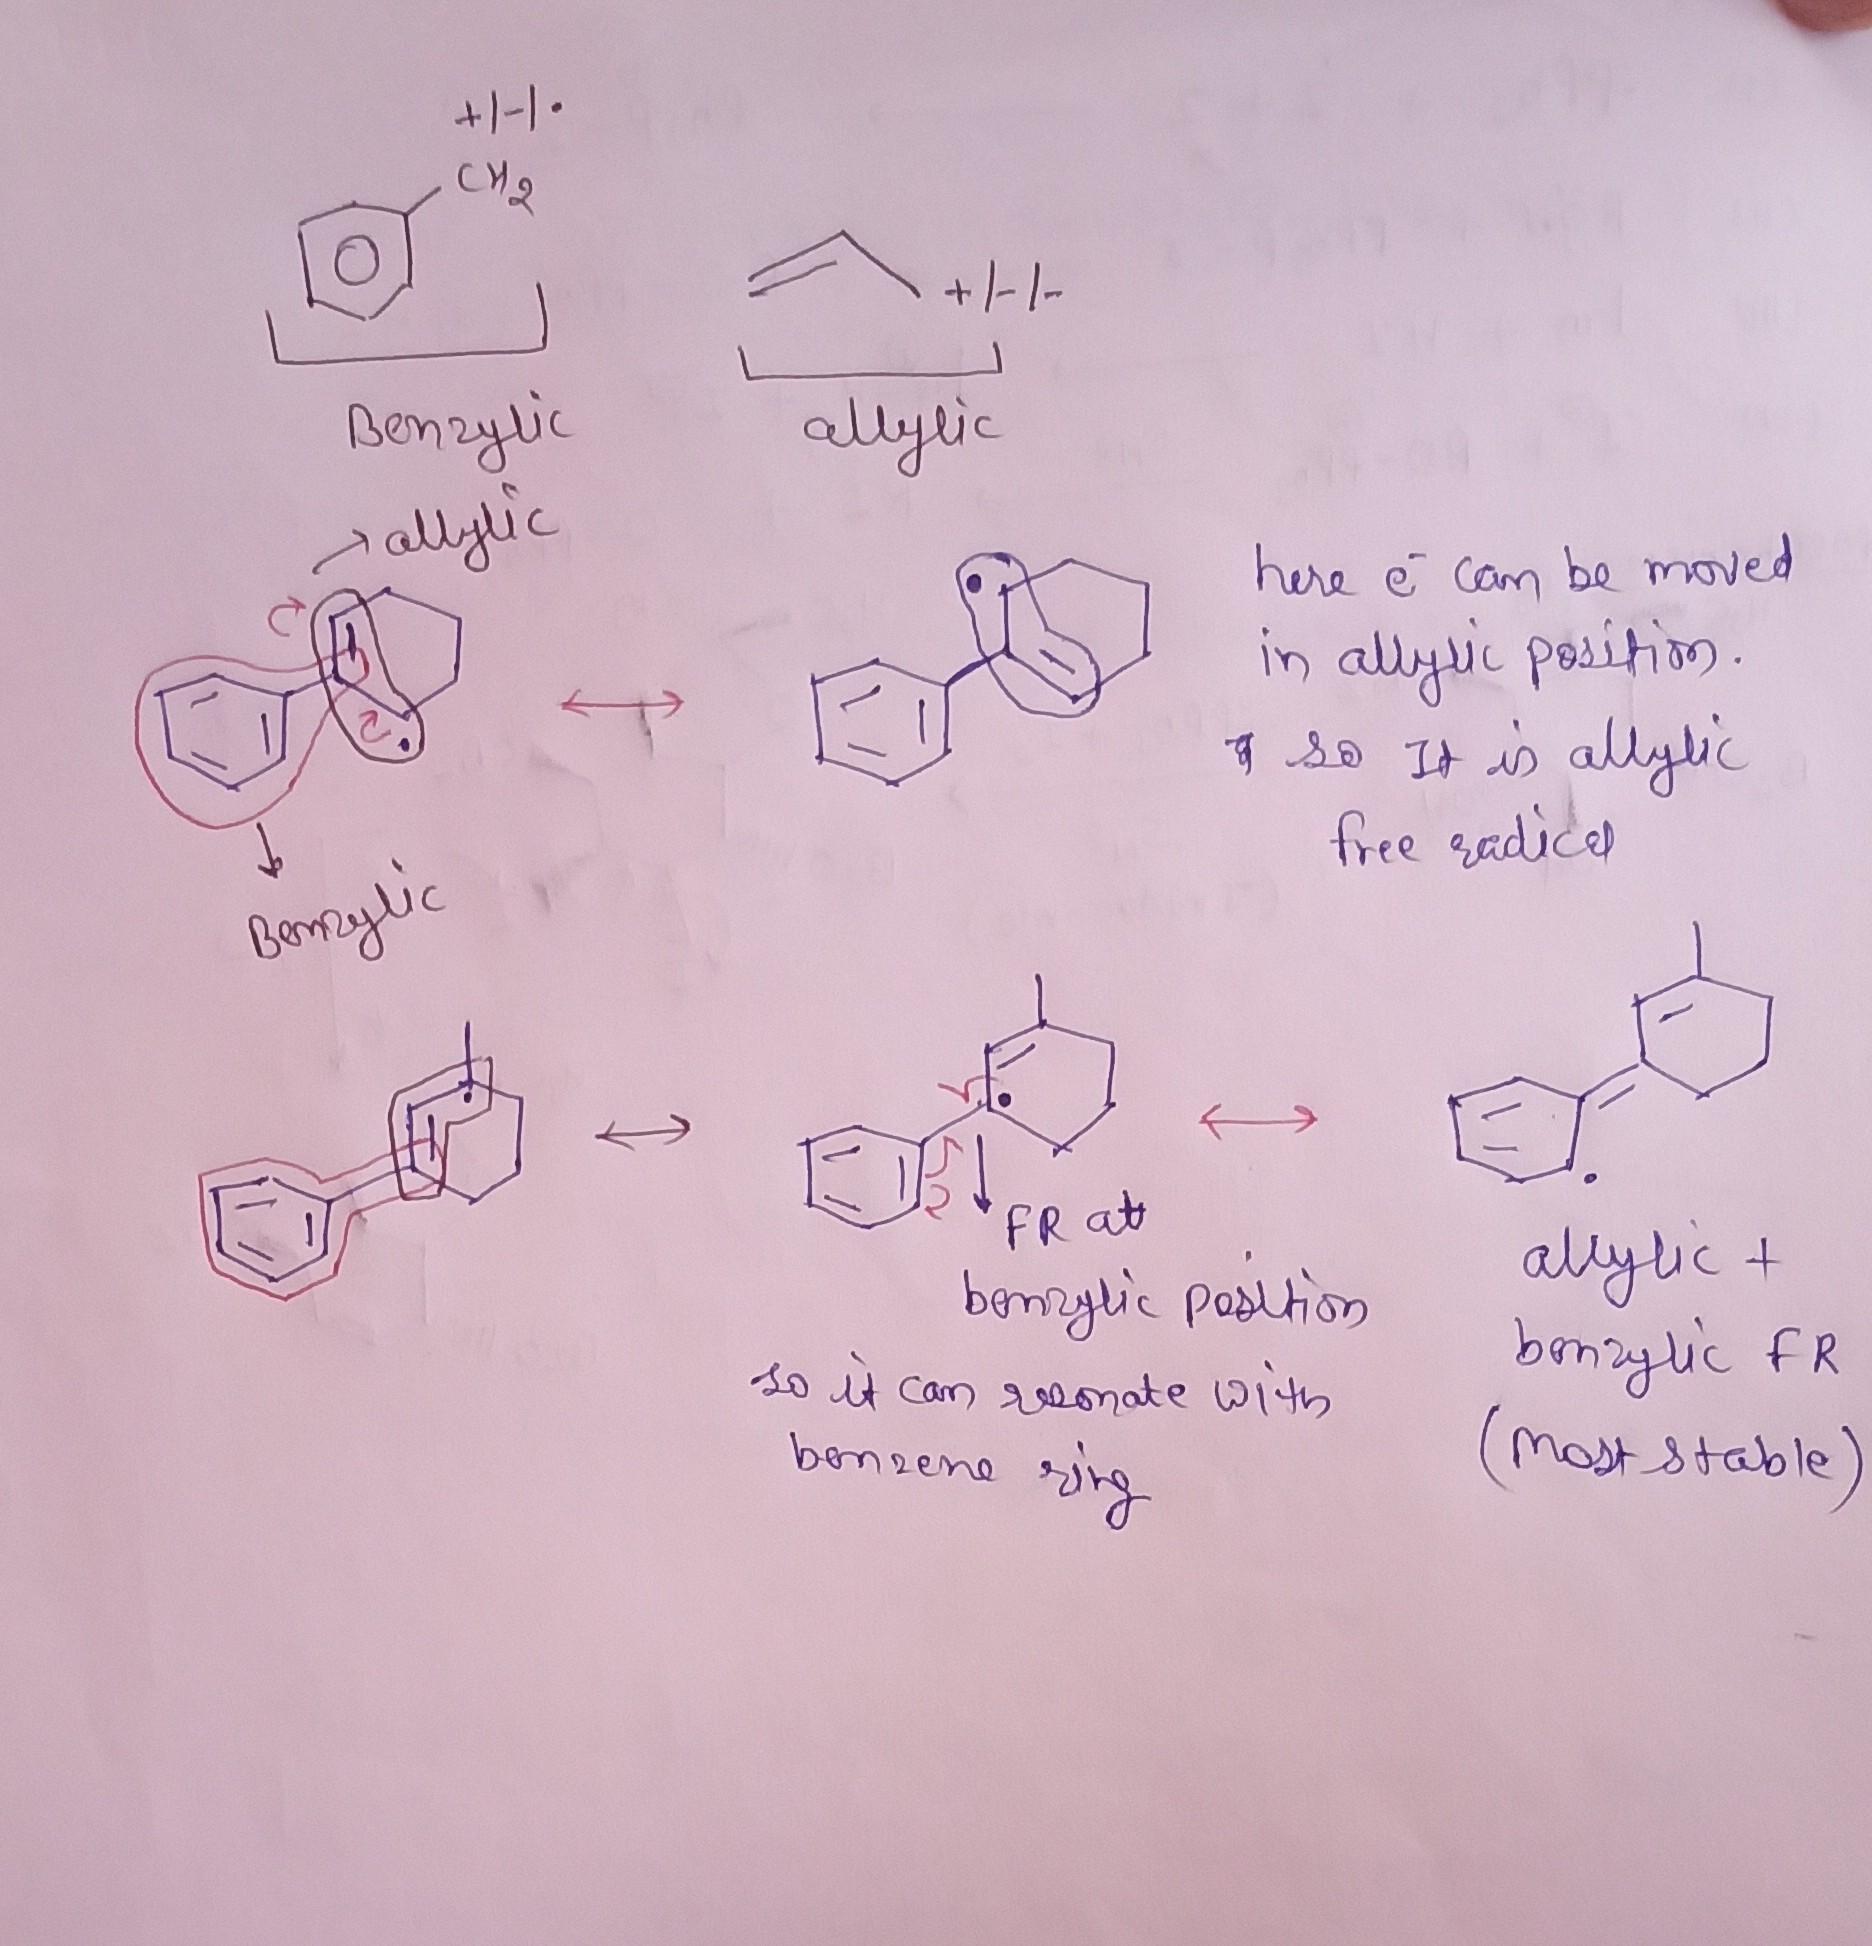 +/-/•
CH2
+/-/-
Benzylic
allylic
allylic
here e⁻ can be moved
in allylic position.
so It is allylic
free radical
Benzylic
FR at
benzylic position
so it can resonate with
benzene ring
allylic +
benzylic FR
(Most stable)